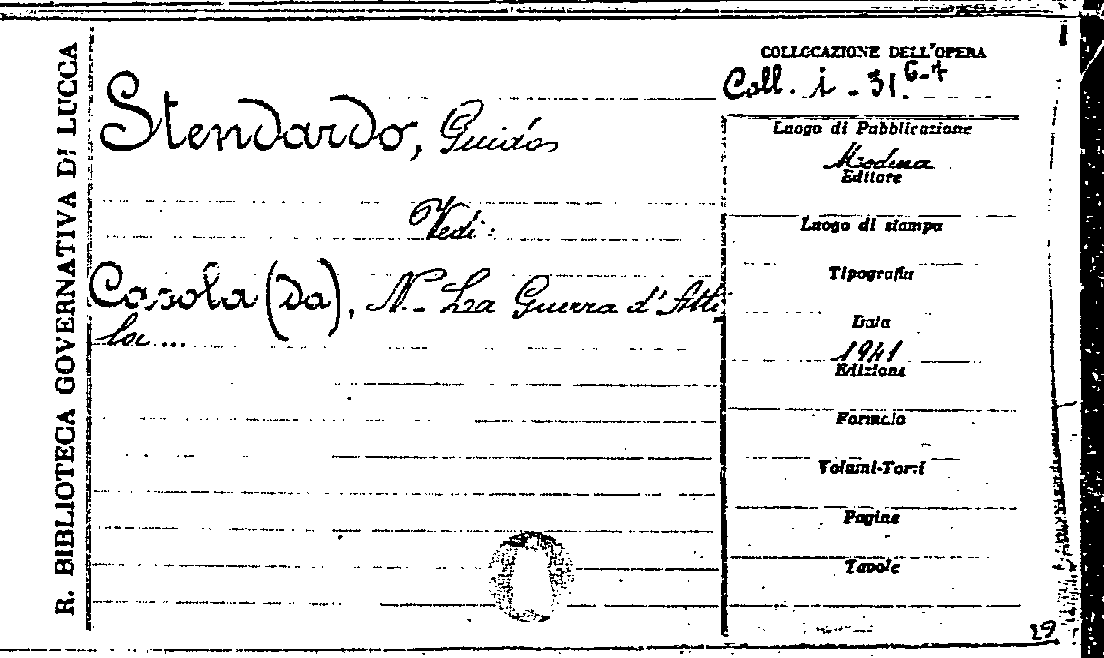 R. BIBLIOTECA GOVERNATIVA DI LUCCA
COLLOCAZIONE DELL'OPERA
Coll. i - 31. 6-7
Stendardo, Guido
Vedi:
Casola (Da), N. - La Guerra d'Atti
la ...
Luogo di Pubblicazione
Modena
Editore
Luogo di stampa
Tipografia
Data
1941
Edizione
Formato
Volumi-Tomi
Pagine
Tavole
29